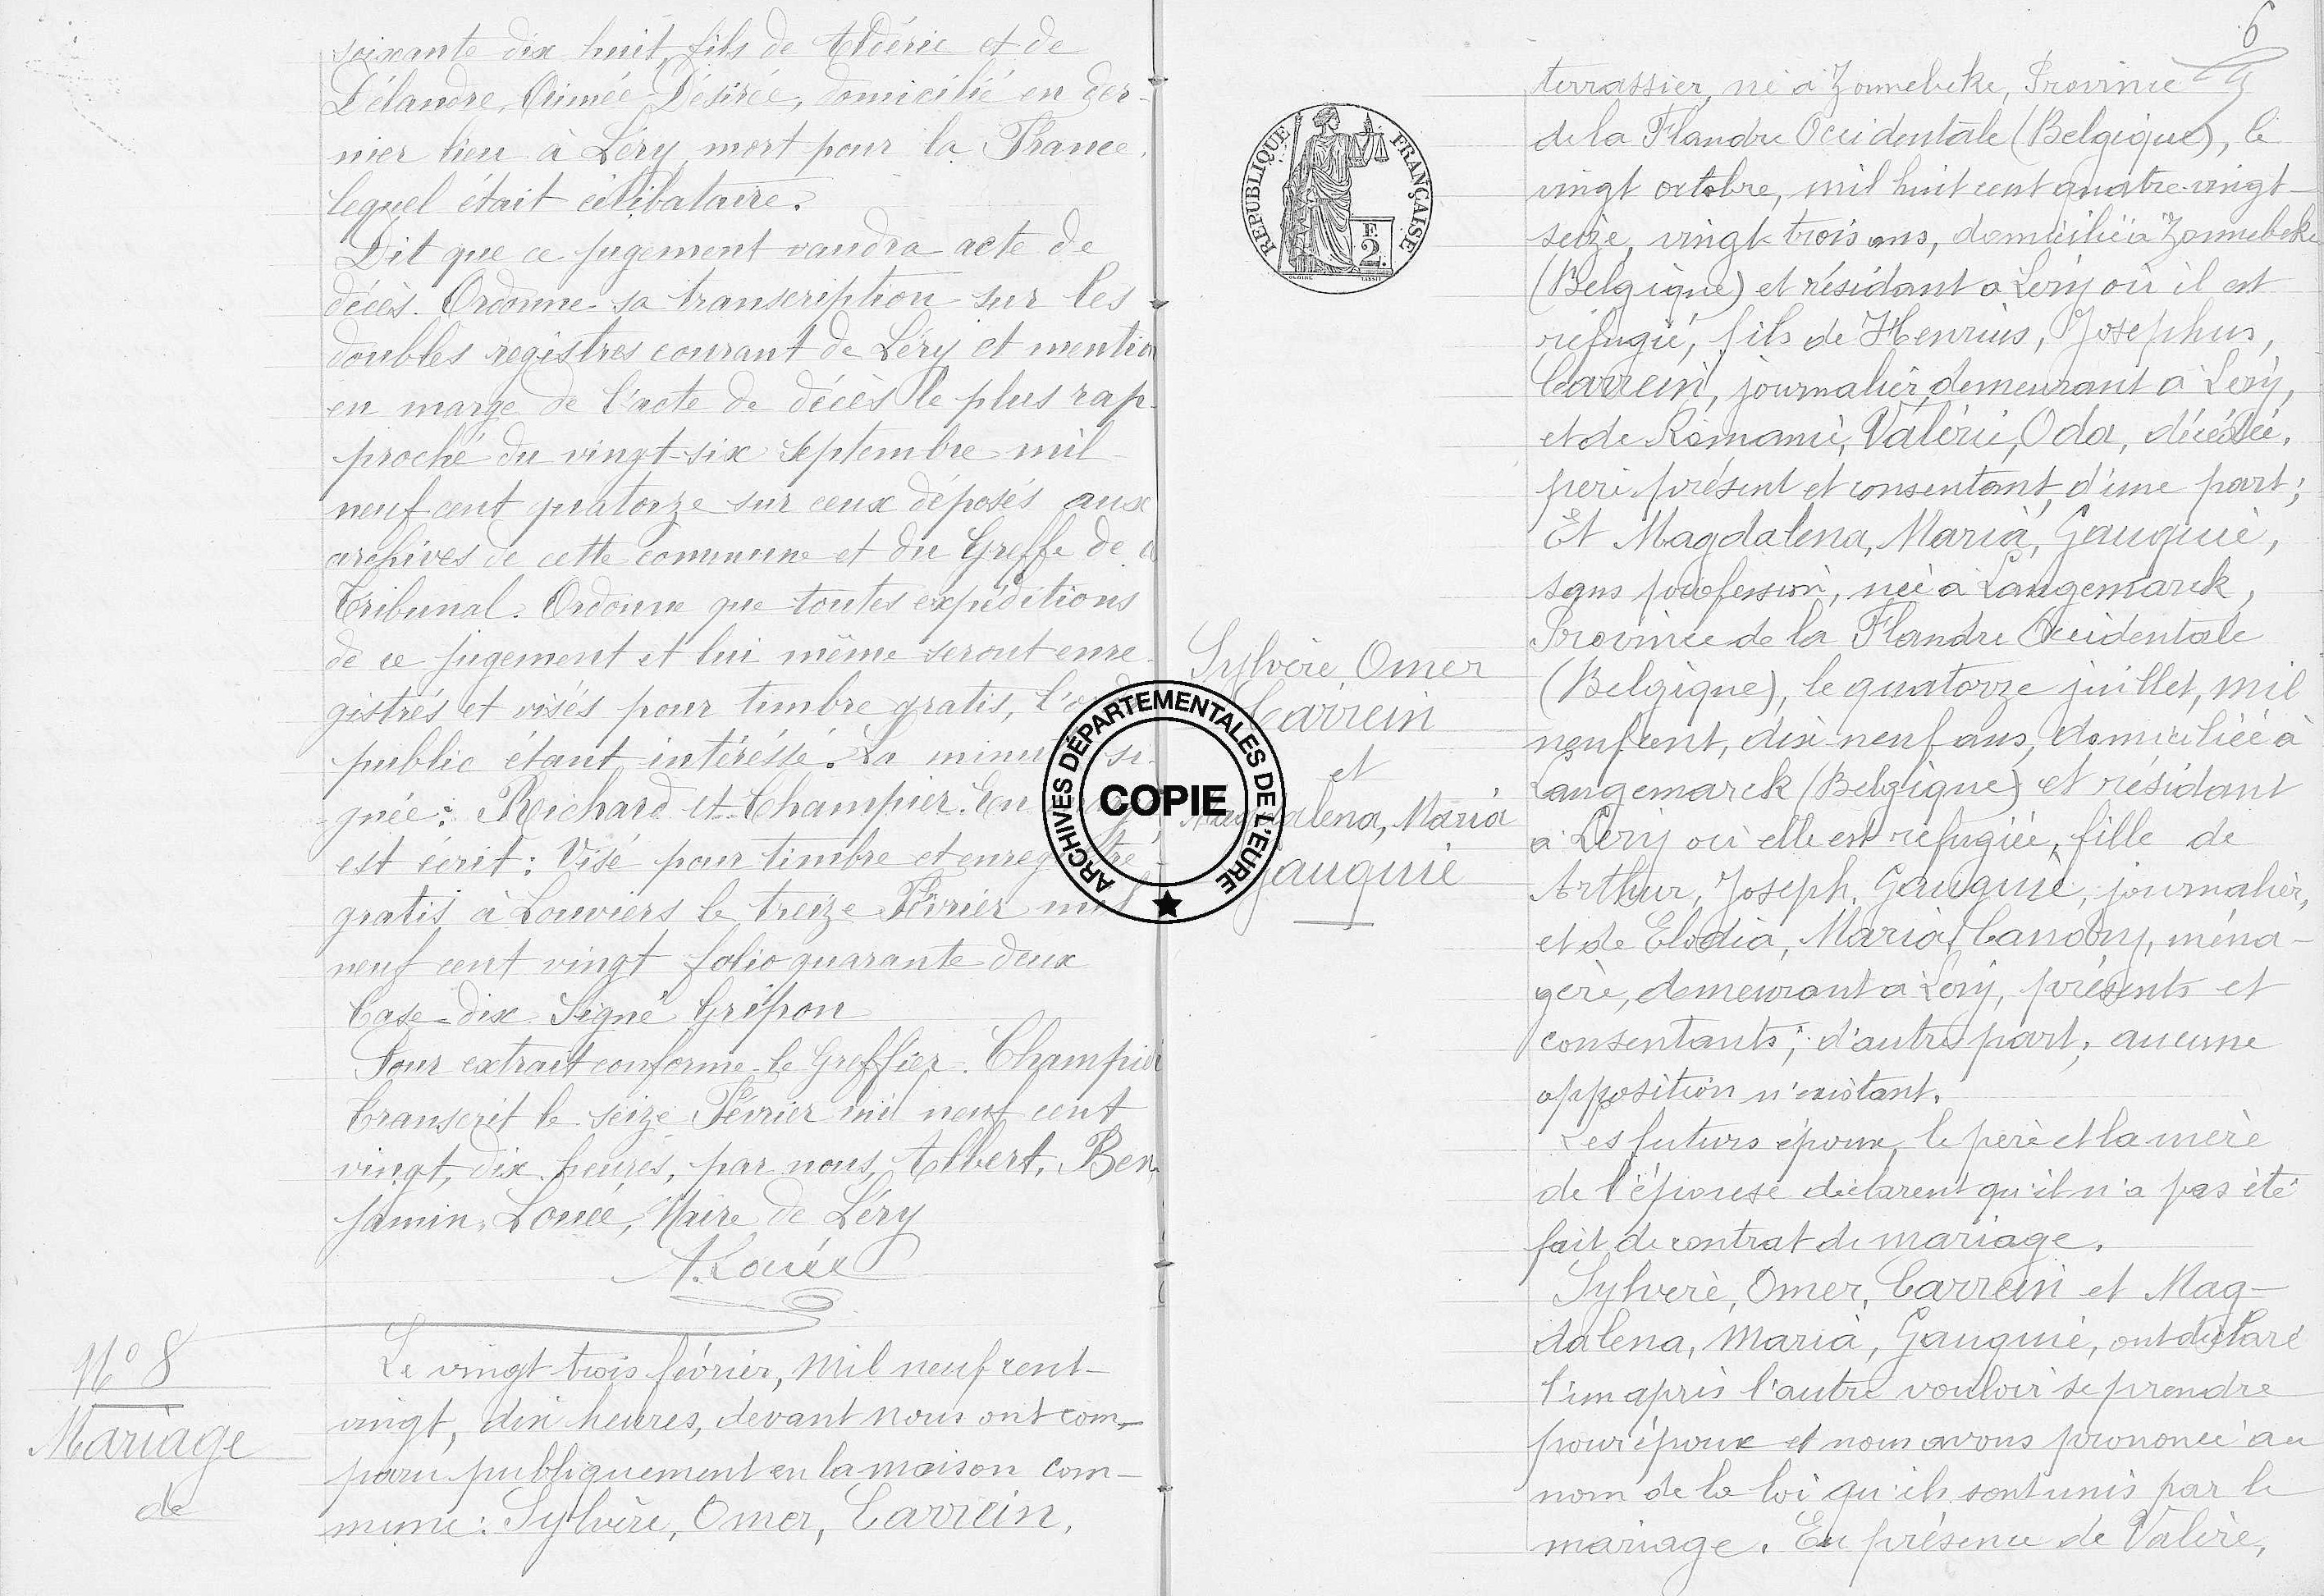 soixante dix huit, fils de Aldéric et de
Délandre, Aimée Désirée, domicilié en der-
nier lieu à Léry, mort pour la France,
lequel était célibataire.
Dit que ce jugement vaudra acte de
décès. Ordonne sa transcription sur les
doubles registres courant de Léry et mention
en marge de l'acte de décès le plus rap-
proché du vingt-six Septembre mil
neuf cent quatorze sur ceux déposés aux
archives de cette commune et du Greffe de ce
Tribunal. Ordonne que toutes expéditions
de ce jugement et lui même seront enre
gistrés et visés pour timbre gratis, l'
public étant intéréssé. La minute si-
gnée: Richard et Champier. En
est écrit: Visé pour timbre et enregistré
gratis à Louviers le treize Février mil
neuf cent vingt folio quarante deux
Case dix Signé Gripon
Pour extrait conforme le Greffier. Champier
Transcrit le seize Février mil neuf cent
vingt, dix heures, par nous, Albert, Ben-
jamin, Louée, Maire de Léry
A. Louée
N° 8
Mariage
de
Le vingt trois février, mil neuf cent-
vingt, dix heures, devant nous ont com-
paru publiquement en la maison com-
mune: Sylvère, Omer, Carrein,
REPUBLIQUE FRANÇAISE
F.
2.
ARCHIVES DÉPARTEMENTALES DE L'EURE
COPIE
Sylvère Omer
Carrein
et
Magdalena, Maria
Gauquie
6
terrassier, né à Zonnebeke, Province
de la Flandre Occidentale (Belgique), le
vingt octobre, mil huit cent quatre-vingt-
seize, vingt-trois ans, domicilié à Zonnebeke
(Belgique) et résidant à Léry où il est
réfugié, fils de Henrius, Josephus,
Carrein, journalier demeurant à Léry,
et de Romanie, Valérie, Oda, décédée,
père présent et consentant, d'une part;
Et Magdalena, Maria, Gauquie,
sans profession, née à Langemarck,
Province de la Flandre Occidentale
(Belgique), le quatorze juillet, mil
neuf cent, dix-neuf ans, domiciliée à
Langemarck (Belgique) et résidant
à Léry où elle est réfugiée, fille de
Arthur, Joseph, Gauquie, journalier,
et de Elodia, Maria, ména-
gère, demeurant à Léry, présents et
consentants; d'autre part; aucune
opposition n'existant.
Les futurs époux, le père et la mère
de l'épouse déclarent qu'il n'a pas été
fait de contrat de mariage.
Sylvère, Omer, Carrein et Mag-
dalena, Maria, Gauquie, ont déclaré
l'un après l'autre vouloir se prendre
pour époux et nous avons prononcé au
nom de la loi qu'ils sont unis par le
mariage. En présence de Valère,